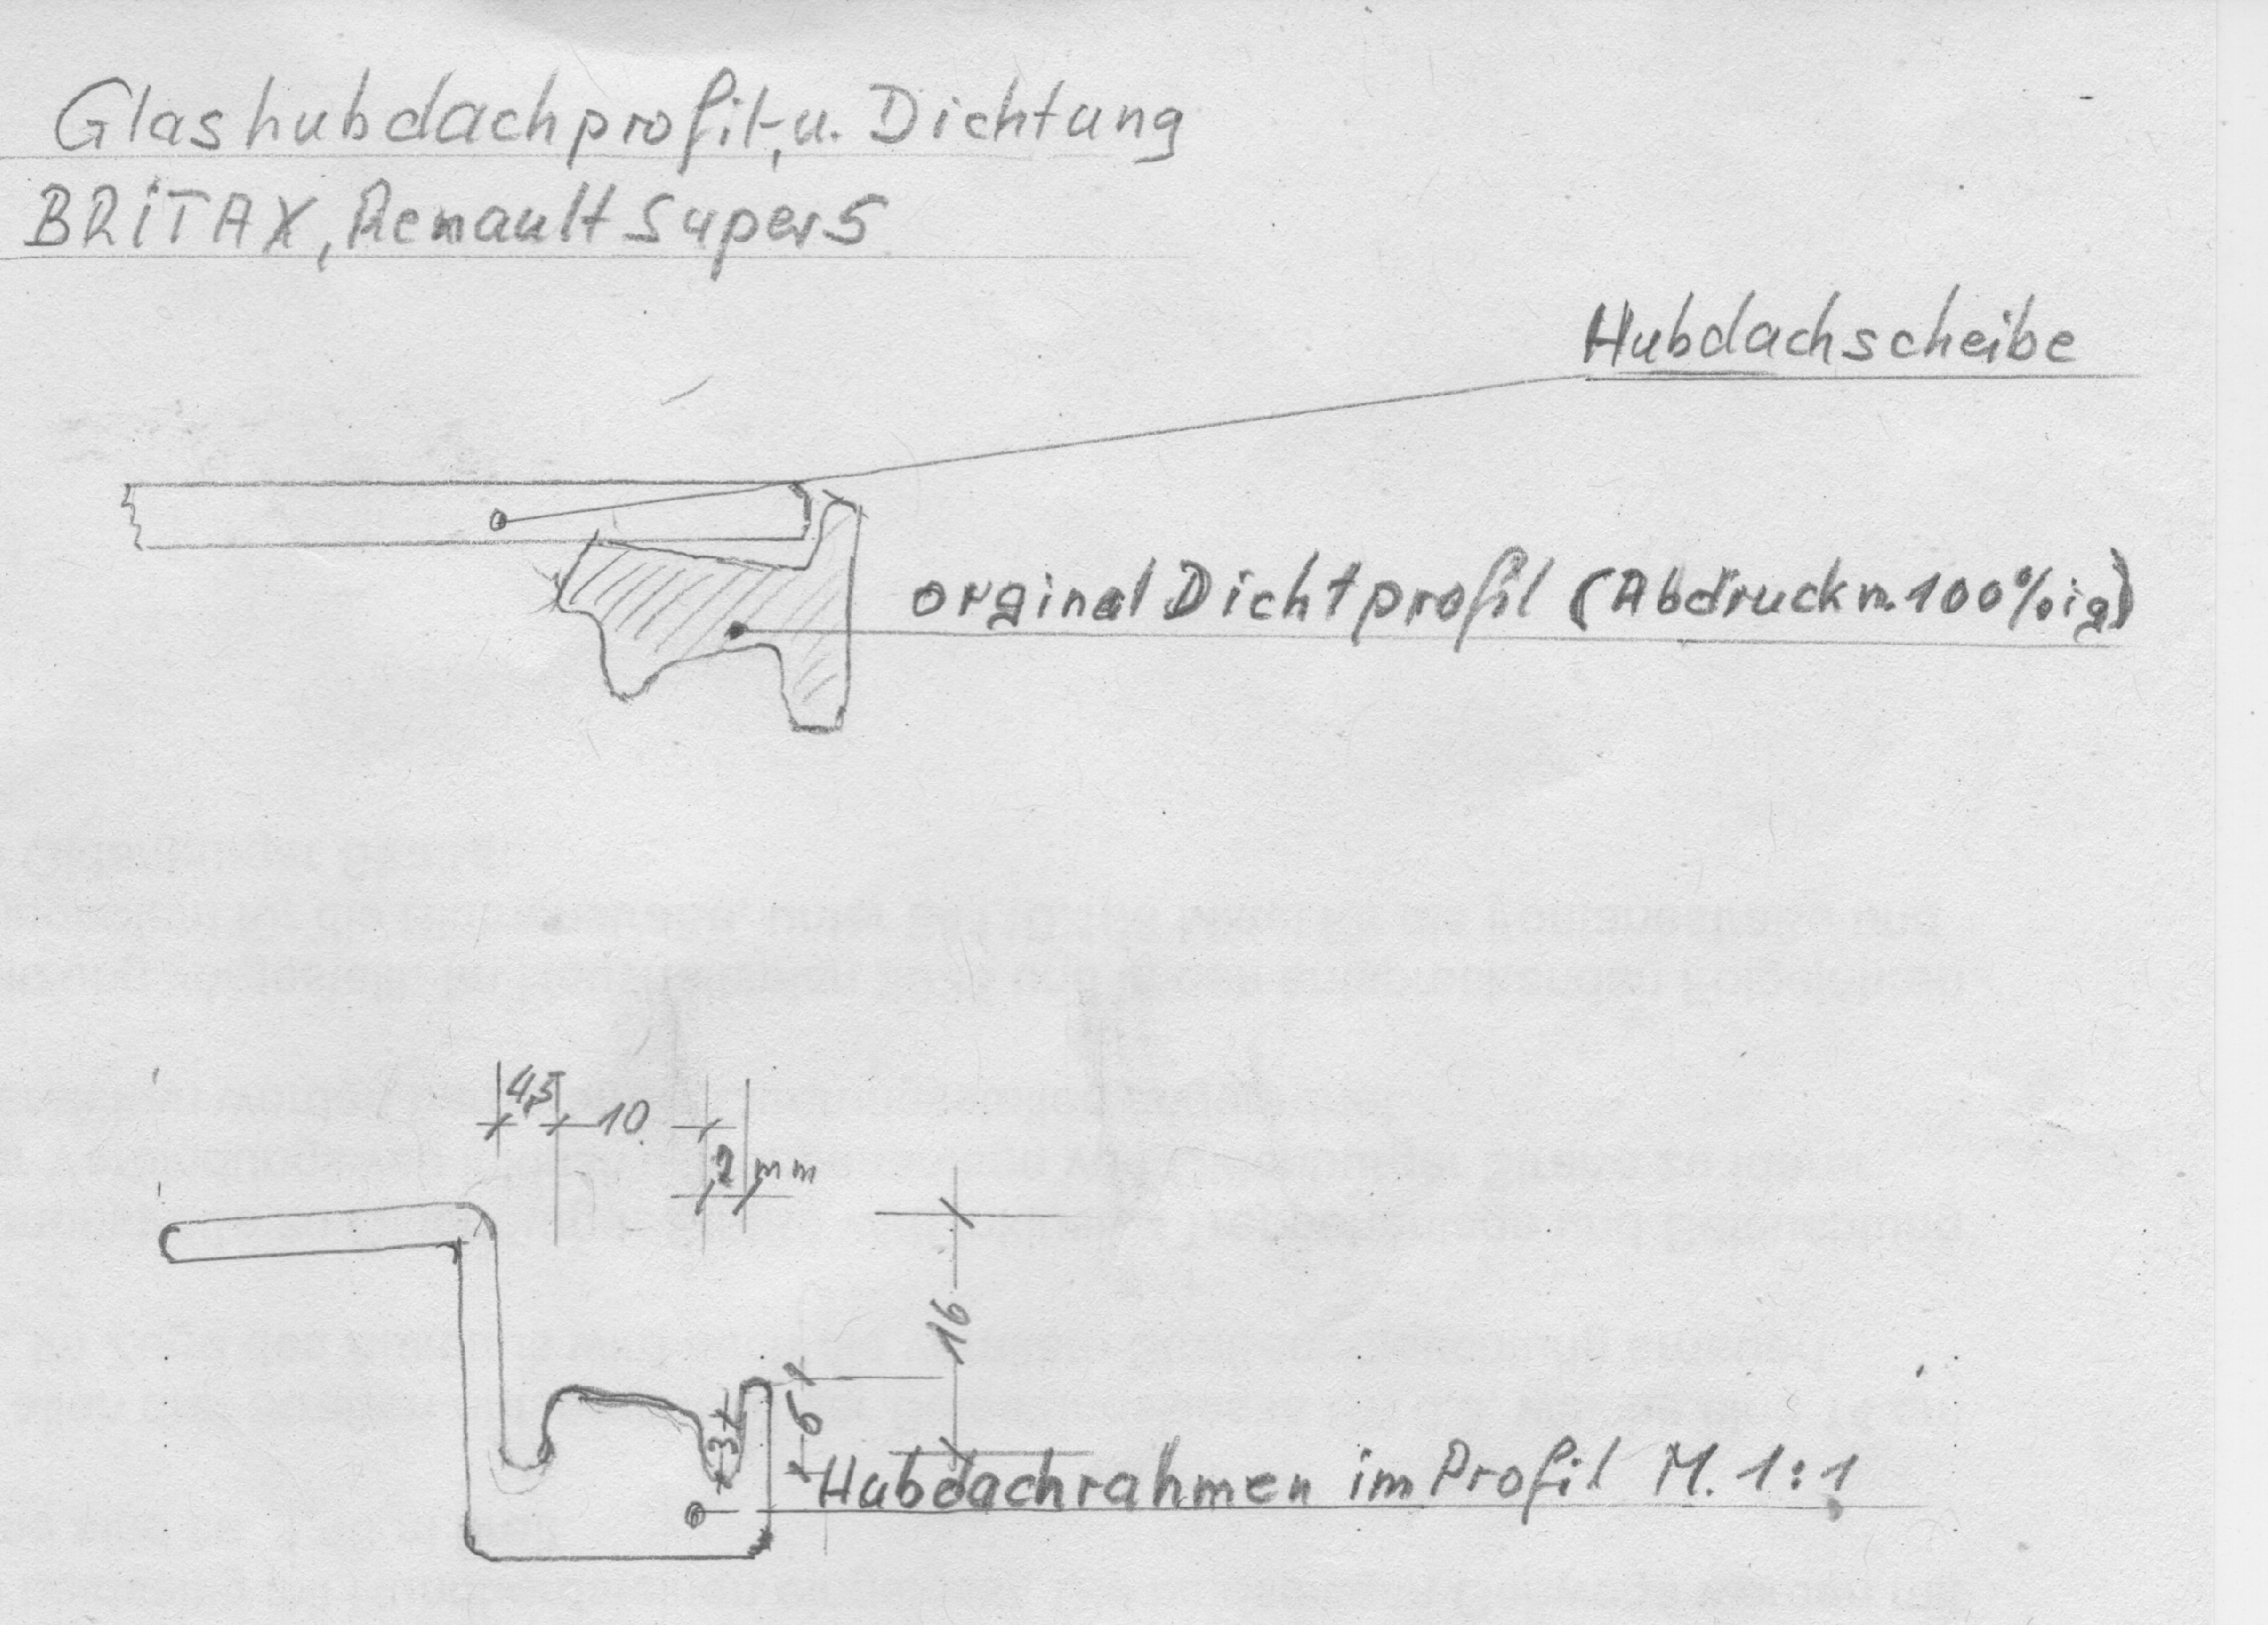 Glashubdachprofil-, u. Dichtung
BRiTAX, Renault Super5
Hubdachscheibe
orginal Dichtprofil (Abdruck n. 100%ig)
4,5
10
2 mm
16
6
3
Hubdachrahmen im Profil M. 1:1